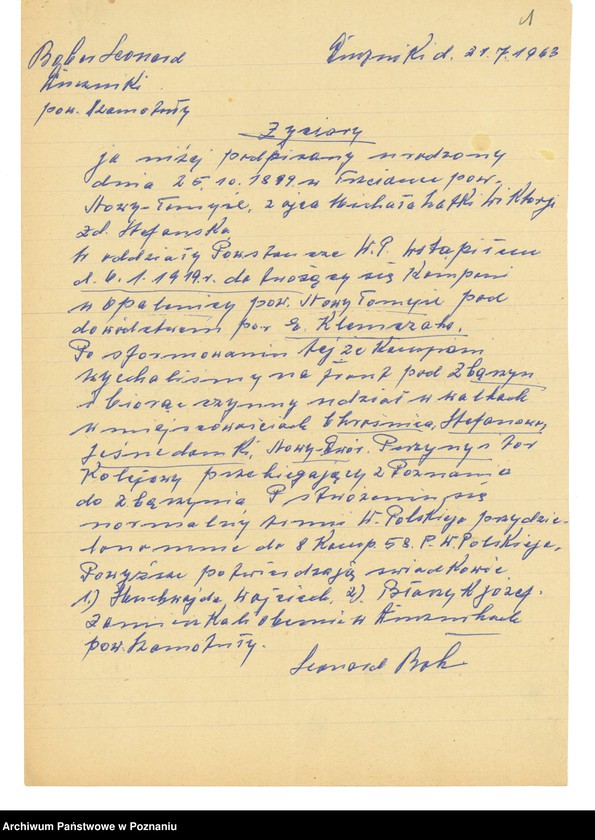 1
Bąber Leonard
Duszniki d. 21.7.1963
Duszniki
pow. Szamotuły
Życiorys
ja niżej podpisany urodzony
dnia 25.10.1899 w Trzciance pow.
Nowy-Tomysl, z ojca Michała Matki Wiktorji
zd. Stefanska
W oddziały Powstańcze W.P. wstąpiłem
d. 6.1.1919r. do tworzący się Kompani
w Opalenicy pow. Nowy Tomysl pod
dowództwem por E. Klemczaka.
Po sformowaniu tejże Kompani
wyjechalismy na front pod Zbąszyn
i biorąc czynny udział w walkach
w miejscowościach Chrośnica, Stefanowo,
Nowy-Dwór. Perzyny i tor
Kolejowy przebiegający z Poznania
do Zbąszynia P stworzeniu się
normalnej Armii W. Polskiego przydzie-
lono mnie do 8 Komp. 58. P. W. Polskiego.
Powyższe potwierdzają swiadkowie
1.) Wojciech, 2.) Błaszyk józef.
Zamieszkali obecnie w Dusznikach
pow. Szamotuły.
Leonard
Archiwum Państwowe w Poznaniu